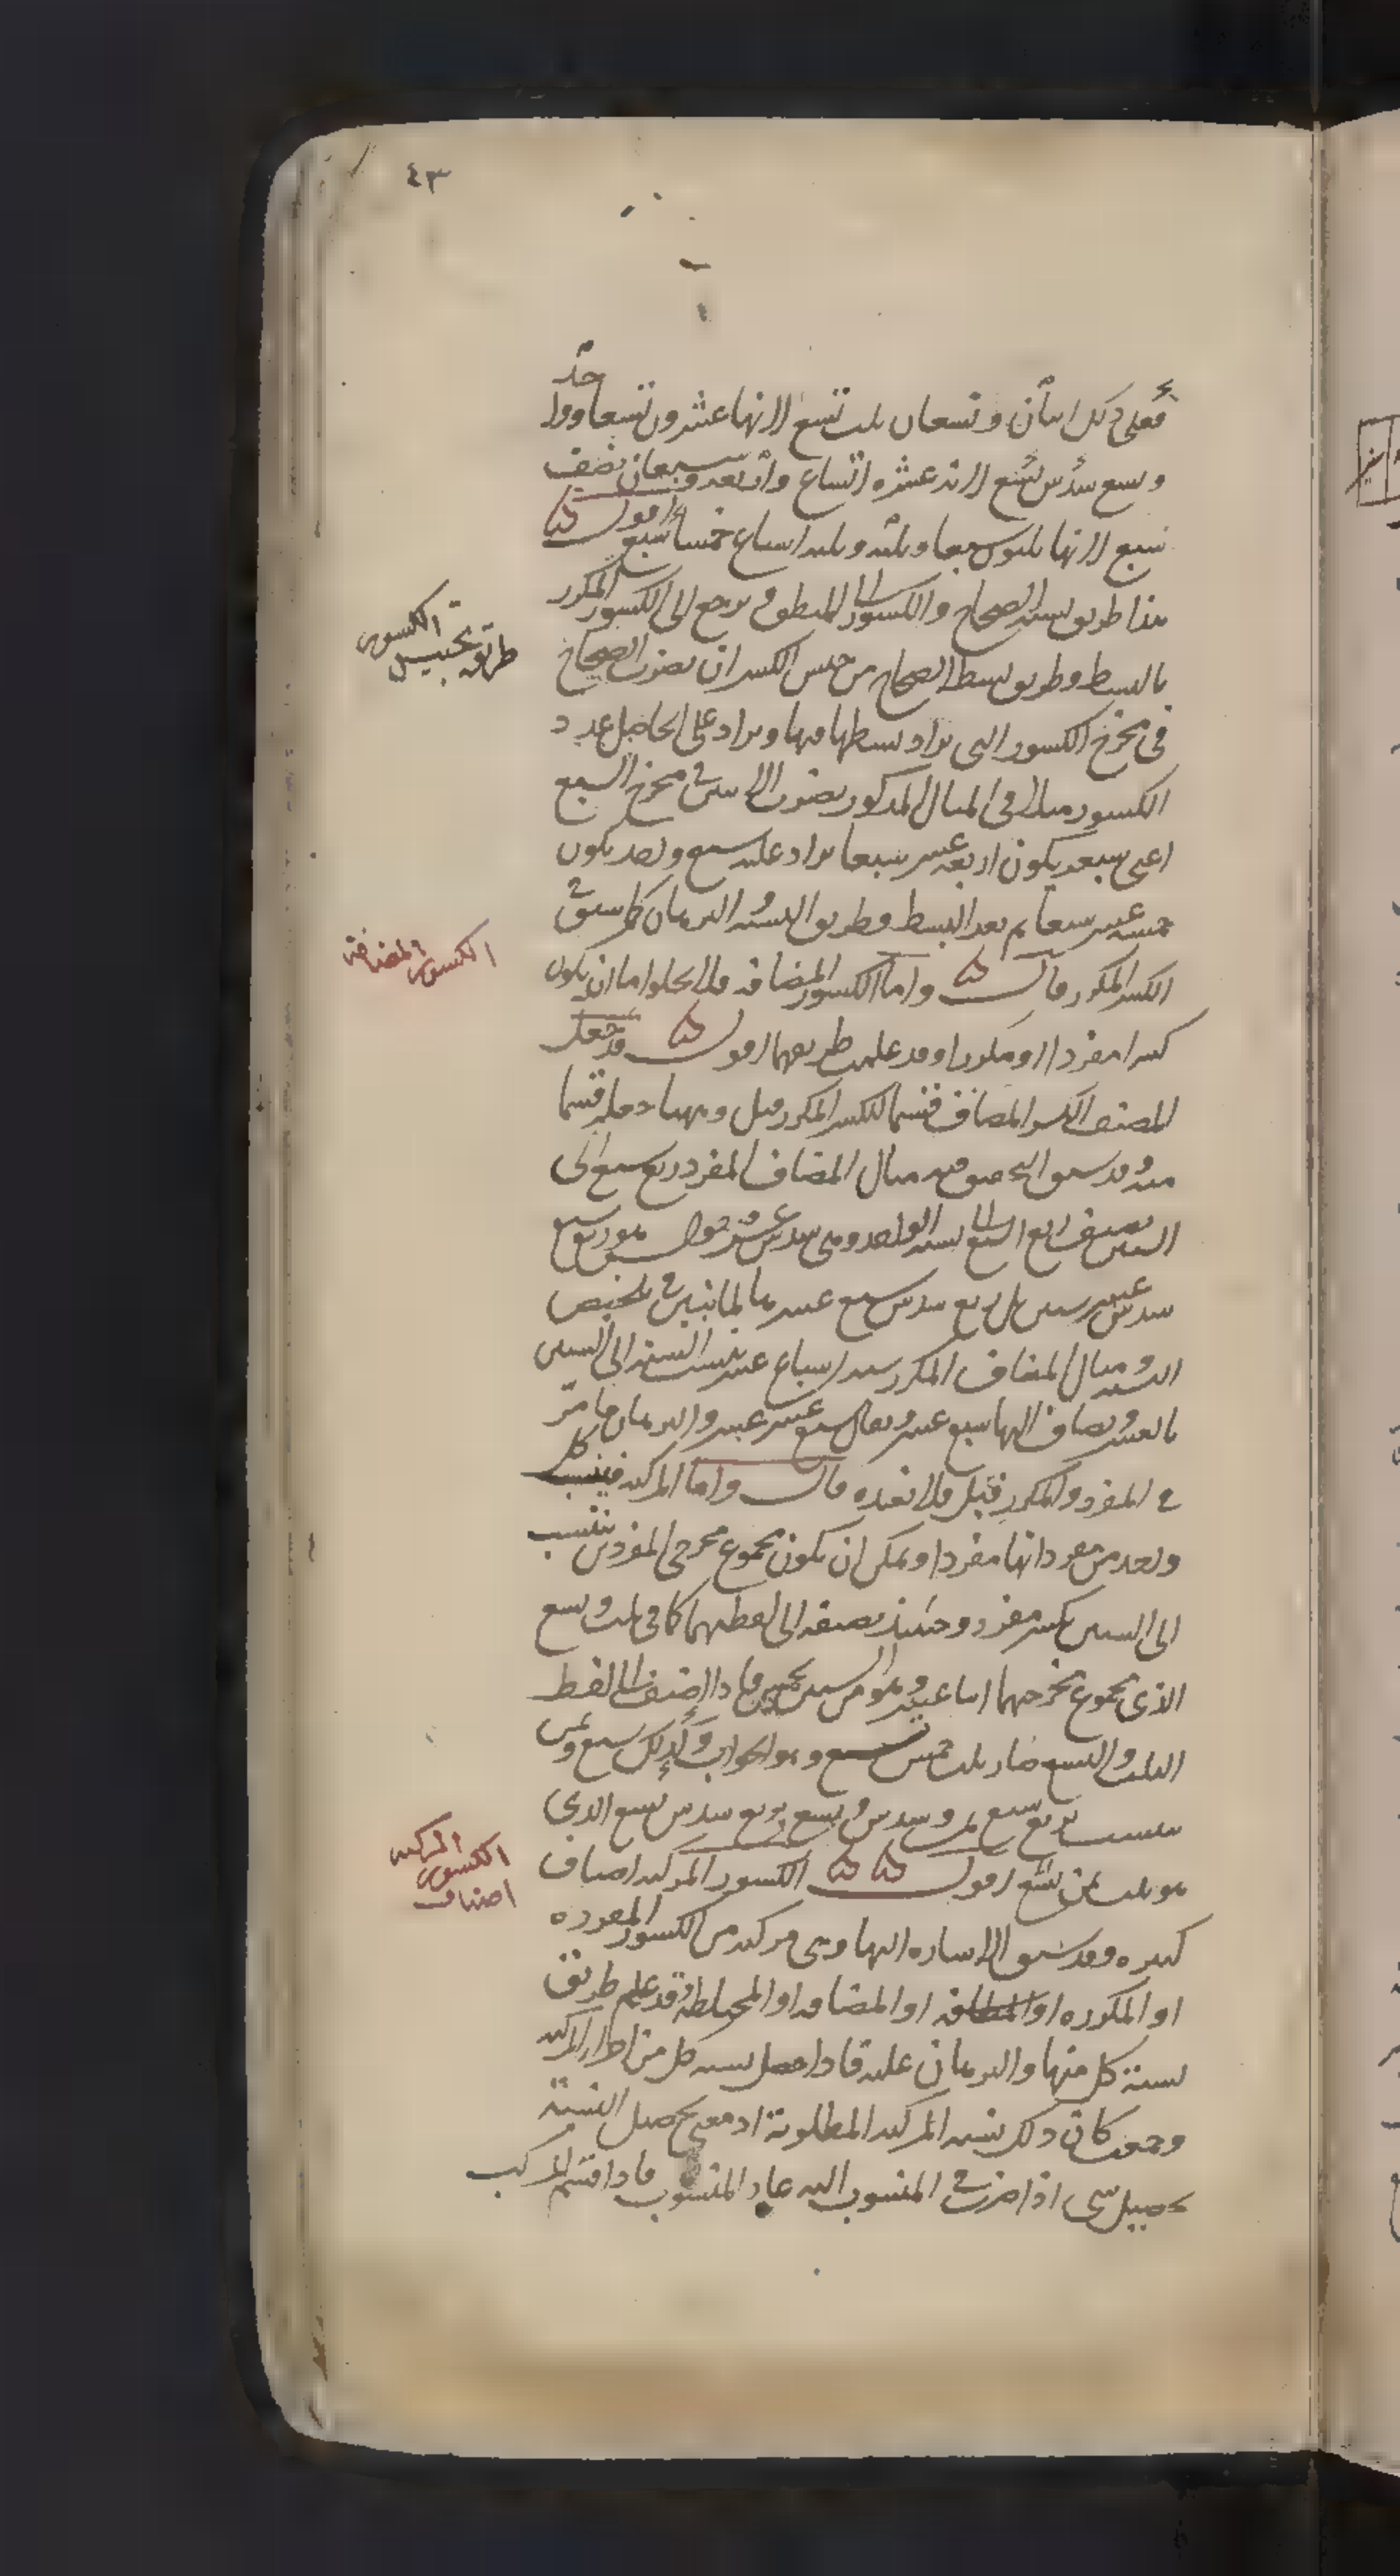 ٤٣
فعلى ذلك اثنان وتسعان ثلث تسع لانها عشرون تسعا وواحد
وتسع سدس تسع لانه عشرة اتساع واربعة وسبعان نصف
سبع لانها ثلثون سبعا وثلثة وثلثة اسباع خمسا سبع اقول
هذا طريق نسبة الصحاح والكسور الى المنطق ويرجع الى الكسور المكرر
طريقة تجنيس الكسور
بالبسط وطريق بسط الصحاح من جنس الكسر ان يضرب الصحاح
في مخرج الكسور التي يراد بسطها منها ويزاد على الحاصل عدد
الكسور مثلا في المثال المذكور يضرب الاثنين في مخرج السبع
اعني سبعة يكون اربعة عشر سبعا يزاد عليه سبع واحد يكون
خمسة عشر سبعا ثم بعد البسط فطريق النسبة والبرهان كما سبق في
الكسور المضافة
الكسر المكرر قال واما الكسور المضافة فلا يخلوا اما ان يكون
كسرا مفردا او مكررا وقد علمت طريقهما اقول قد جعل
المصنف الكسر المضاف قسما للكسر المكرر قبل وههنا جعله قسما
منه وقد سبق التحقيق فيه مثال المضاف المفرد ربع سبع الى
الستين نصف ربع السبع الى نسبة الواحد وهي سدس عشر جواب هو ربع سبع
سدس عشر ستين بل ربع سدس سبع عشر لما في تلخيص
النسبة ومثال المضاف المكرر ستة اسباع عشر نسبت الستة الى الستين
بالعشر ويضاف اليها سبع عشر ويقال سبع عشر عشر والبرهان ما مر
في المفرد والمكرر قبل فلا نعيده قال واما المركبة فينسب كل
واحد من مفرداتها مفردا ويمكن ان يكون مجموع مخرجي المفردين ينتسب
الى الستين بكسر مفرد وحينئذ يضيفه الى لفظهما كما في ثلث وتسع
الذي مجموع مخرجهما اثنا عشر وهو من الستين خمس فاذا اضيف الى لفظ
الثلث والتسع صار ثلث خمس تسع وهو الجواب وكذلك سبع وثمن
نسبت بربع سبع ثمن وسدس وتسع بربع سدس تسع الذي
الكسور المركبة اصناف
هو ثلث ثمن تسع اقول الكسور المركبة اصناف
كثيرة وقد سبق الاشارة اليها وهي مركبة من الكسور المفردة
او المكررة او المضافة او المختلطة وقد علم طريق
نسبة كل منها والبرهان عليه فاذا حصل نسبة كل من اجزاء المركبة
وجمعت كان ذلك نسبة المركبة المطلوبة اذ معنى تحصيل النسبة
تحصيل شي اذا ضرب في المنسوب اليه عاد المنسوب فاذا قسم المركب